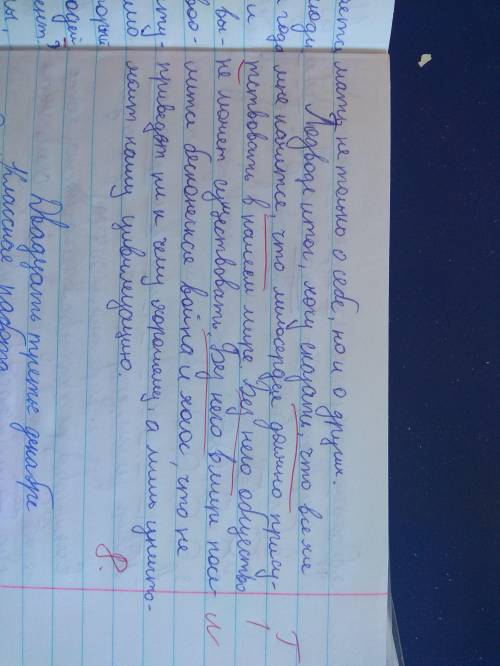 мать не только о себе, но и о других.
Подводя итог, хочу сказать, что все же
мне кажется, что милосердие должно прису-
тствовать в нашем мире. Без него общество
не может существовать. Без него в мире поя-
вится бесконечная война и хаос, что не
приведет ни к чему хорошему, а лишь уничто-
жит нашу цивилизацию.
8.
Двадцать третье декабря
Классная работа